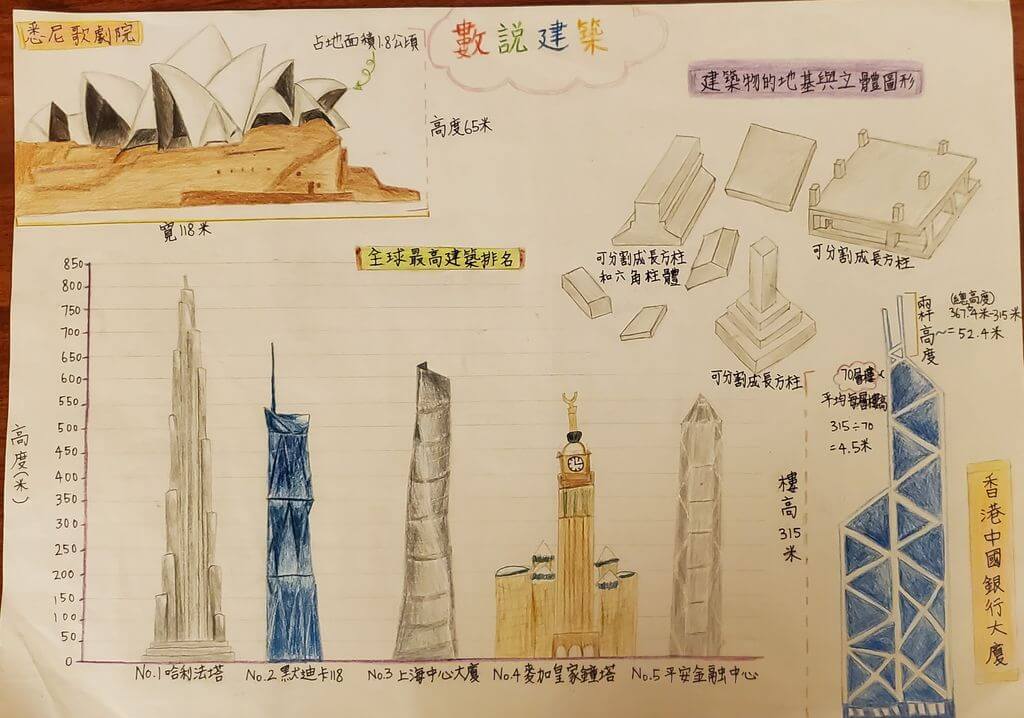 悉尼歌劇院
占地面積1.8公頃
高度65米
寬118米
數說建築
建築物的地基與立體圖形
可分割成長方柱
和六角柱體
可分割成長方柱
可分割成長方柱
全球最高建築排名
高度(米)
850
800
750
700
650
600
550
500
450
400
350
300
250
200
150
100
50
0
No.1哈利法塔
No.2默迪卡118
No.3上海中心大廈
No.4麥加皇家鐘塔
No.5平安金融中心
兩杆高度
(總高度)
367.4米-315米
=52.4米
70層樓
平均每層樓高
315÷70
=4.5米
樓高315米
香港中國銀行大廈